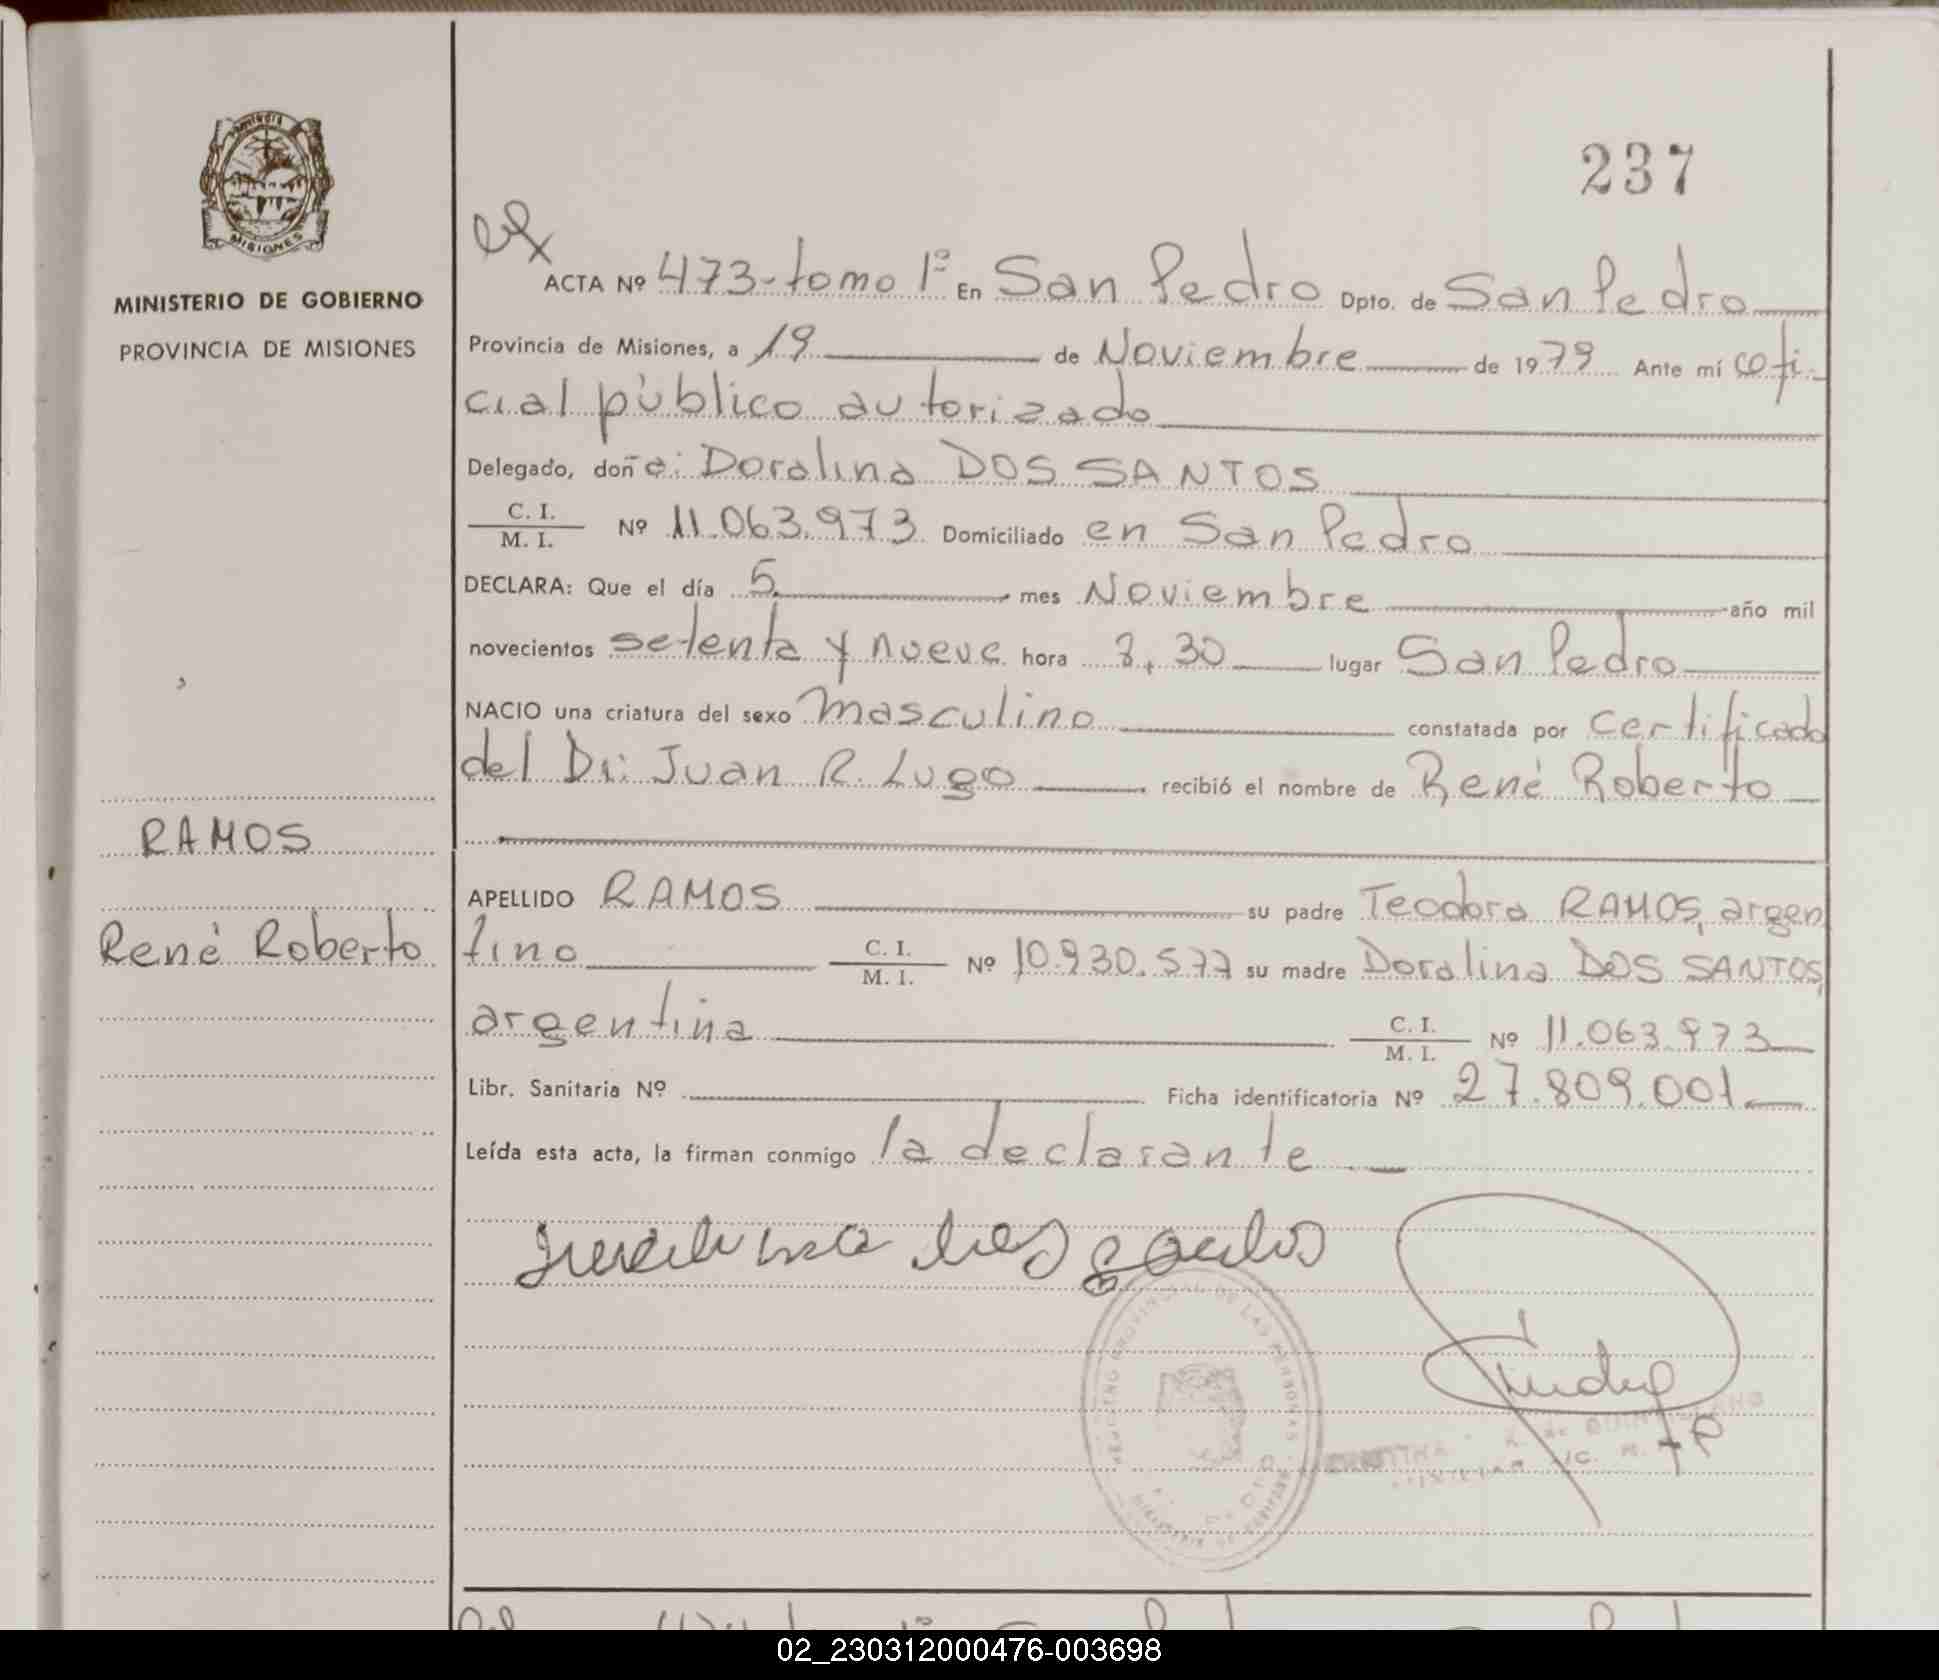 237
MISIONES
MINISTERIO DE GOBIERNO
PROVINCIA DE MISIONES
ACTA Nº 473-tomo 1º En San Pedro Dpto. de San Pedro
Provincia de Misiones, a 19 de Noviembre de 1979 Ante mí ofi-
cial público autorizado
Delegado, doña: Doralina DOS SANTOS
C. I.
M. I. Nº 11.063.973 Domiciliado en San Pedro
DECLARA: Que el día 5 mes Noviembre año mil
novecientos setenta y nueve hora 8,30 lugar San Pedro
NACIO una criatura del sexo masculino constatada por certificado
del Dr: Juan R. Lugo recibió el nombre de René Roberto
RAMOS
René Roberto
APELLIDO RAMOS su padre Teodoro RAMOS, argen
tino C. I.
M. I. Nº 10.930.577 su madre Doralina DOS SANTOS,
argentina C. I.
M. I. Nº 11.063.973
Libr. Sanitaria Nº Ficha identificatoria Nº 27.809.001
Leída esta acta, la firman conmigo la declarante
02_230312000476-003698